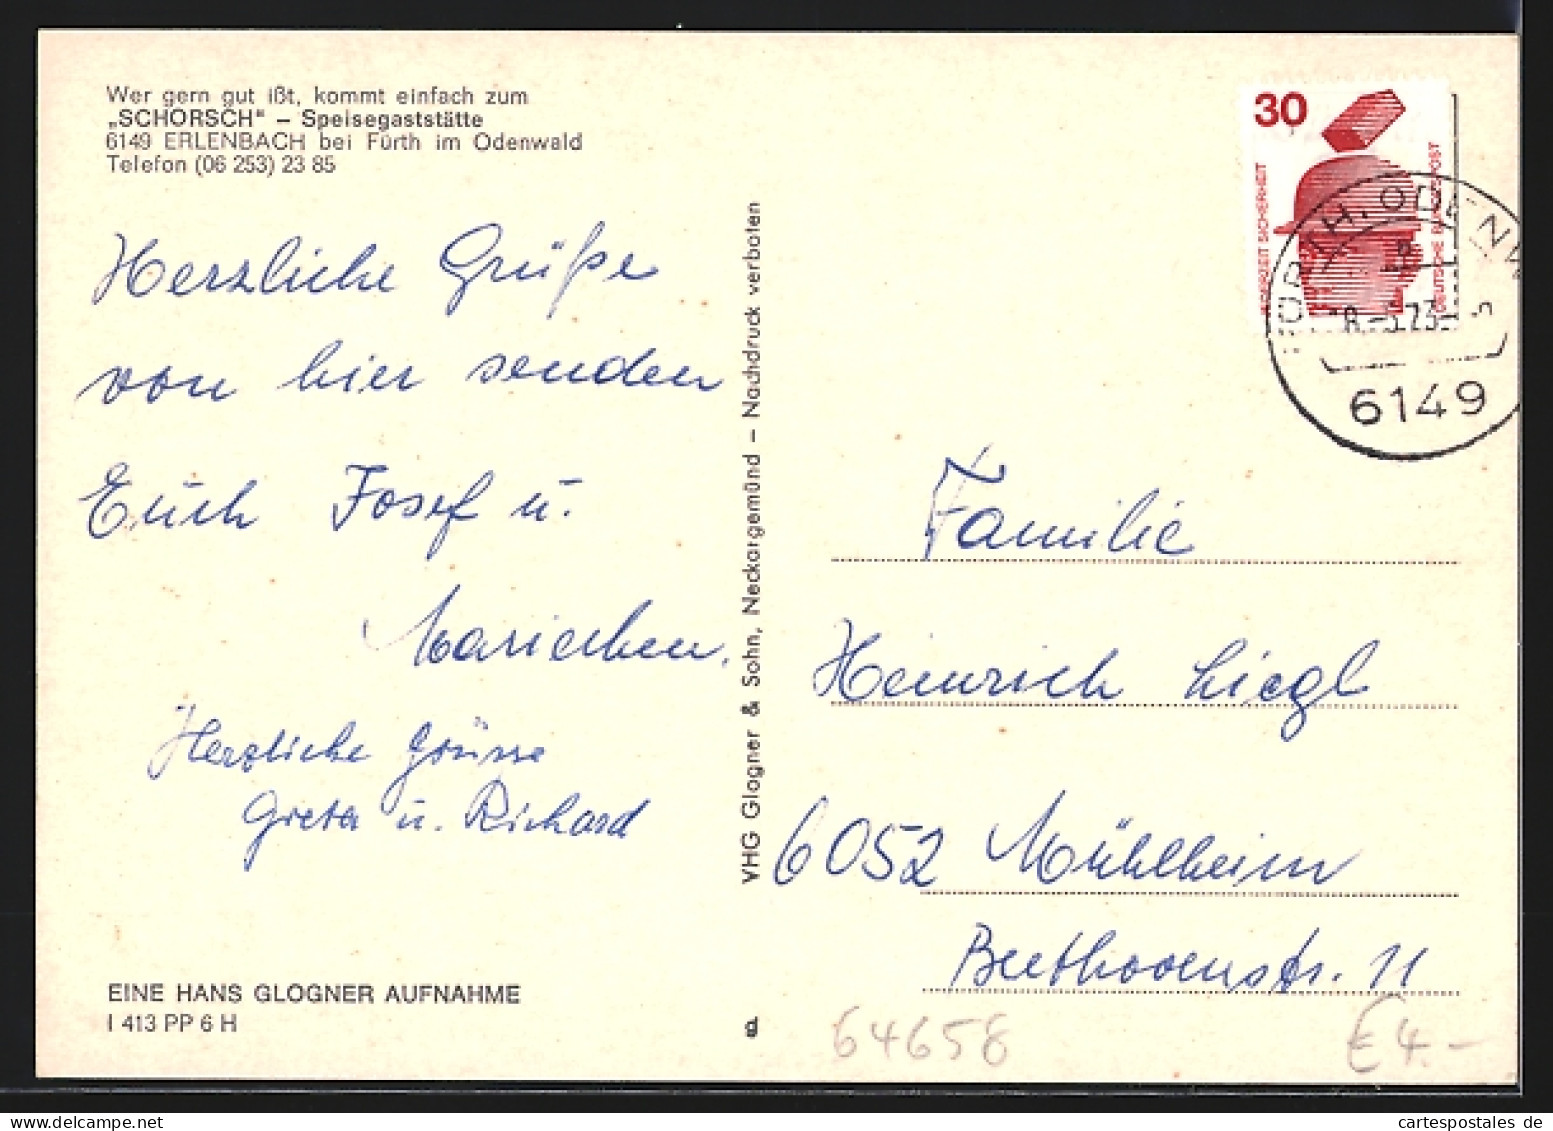 Wer gern gut ißt, kommt einfach zum
„SCHORSCH" – Speisegaststätte
6149 ERLENBACH bei Fürth im Odenwald
Telefon (06 253) 23 85
Herzliche Grüße
von hier senden
Euch Josef u.
Mariechen.
Herzliche Grüsse
Greta u. Richard
EINE HANS GLOGNER AUFNAHME
I 413 PP 6 H
VHG Glogner & Sohn, Neckargemünd – Nachdruck verboten
g
30
JEDERZEIT SICHERHEIT
DEUTSCHE BUNDESPOST
6149
Familie
Heinrich Liegl
6052 Mühlheim
Beethovenstr. 11
64658
€ 4.-
cartespostales de